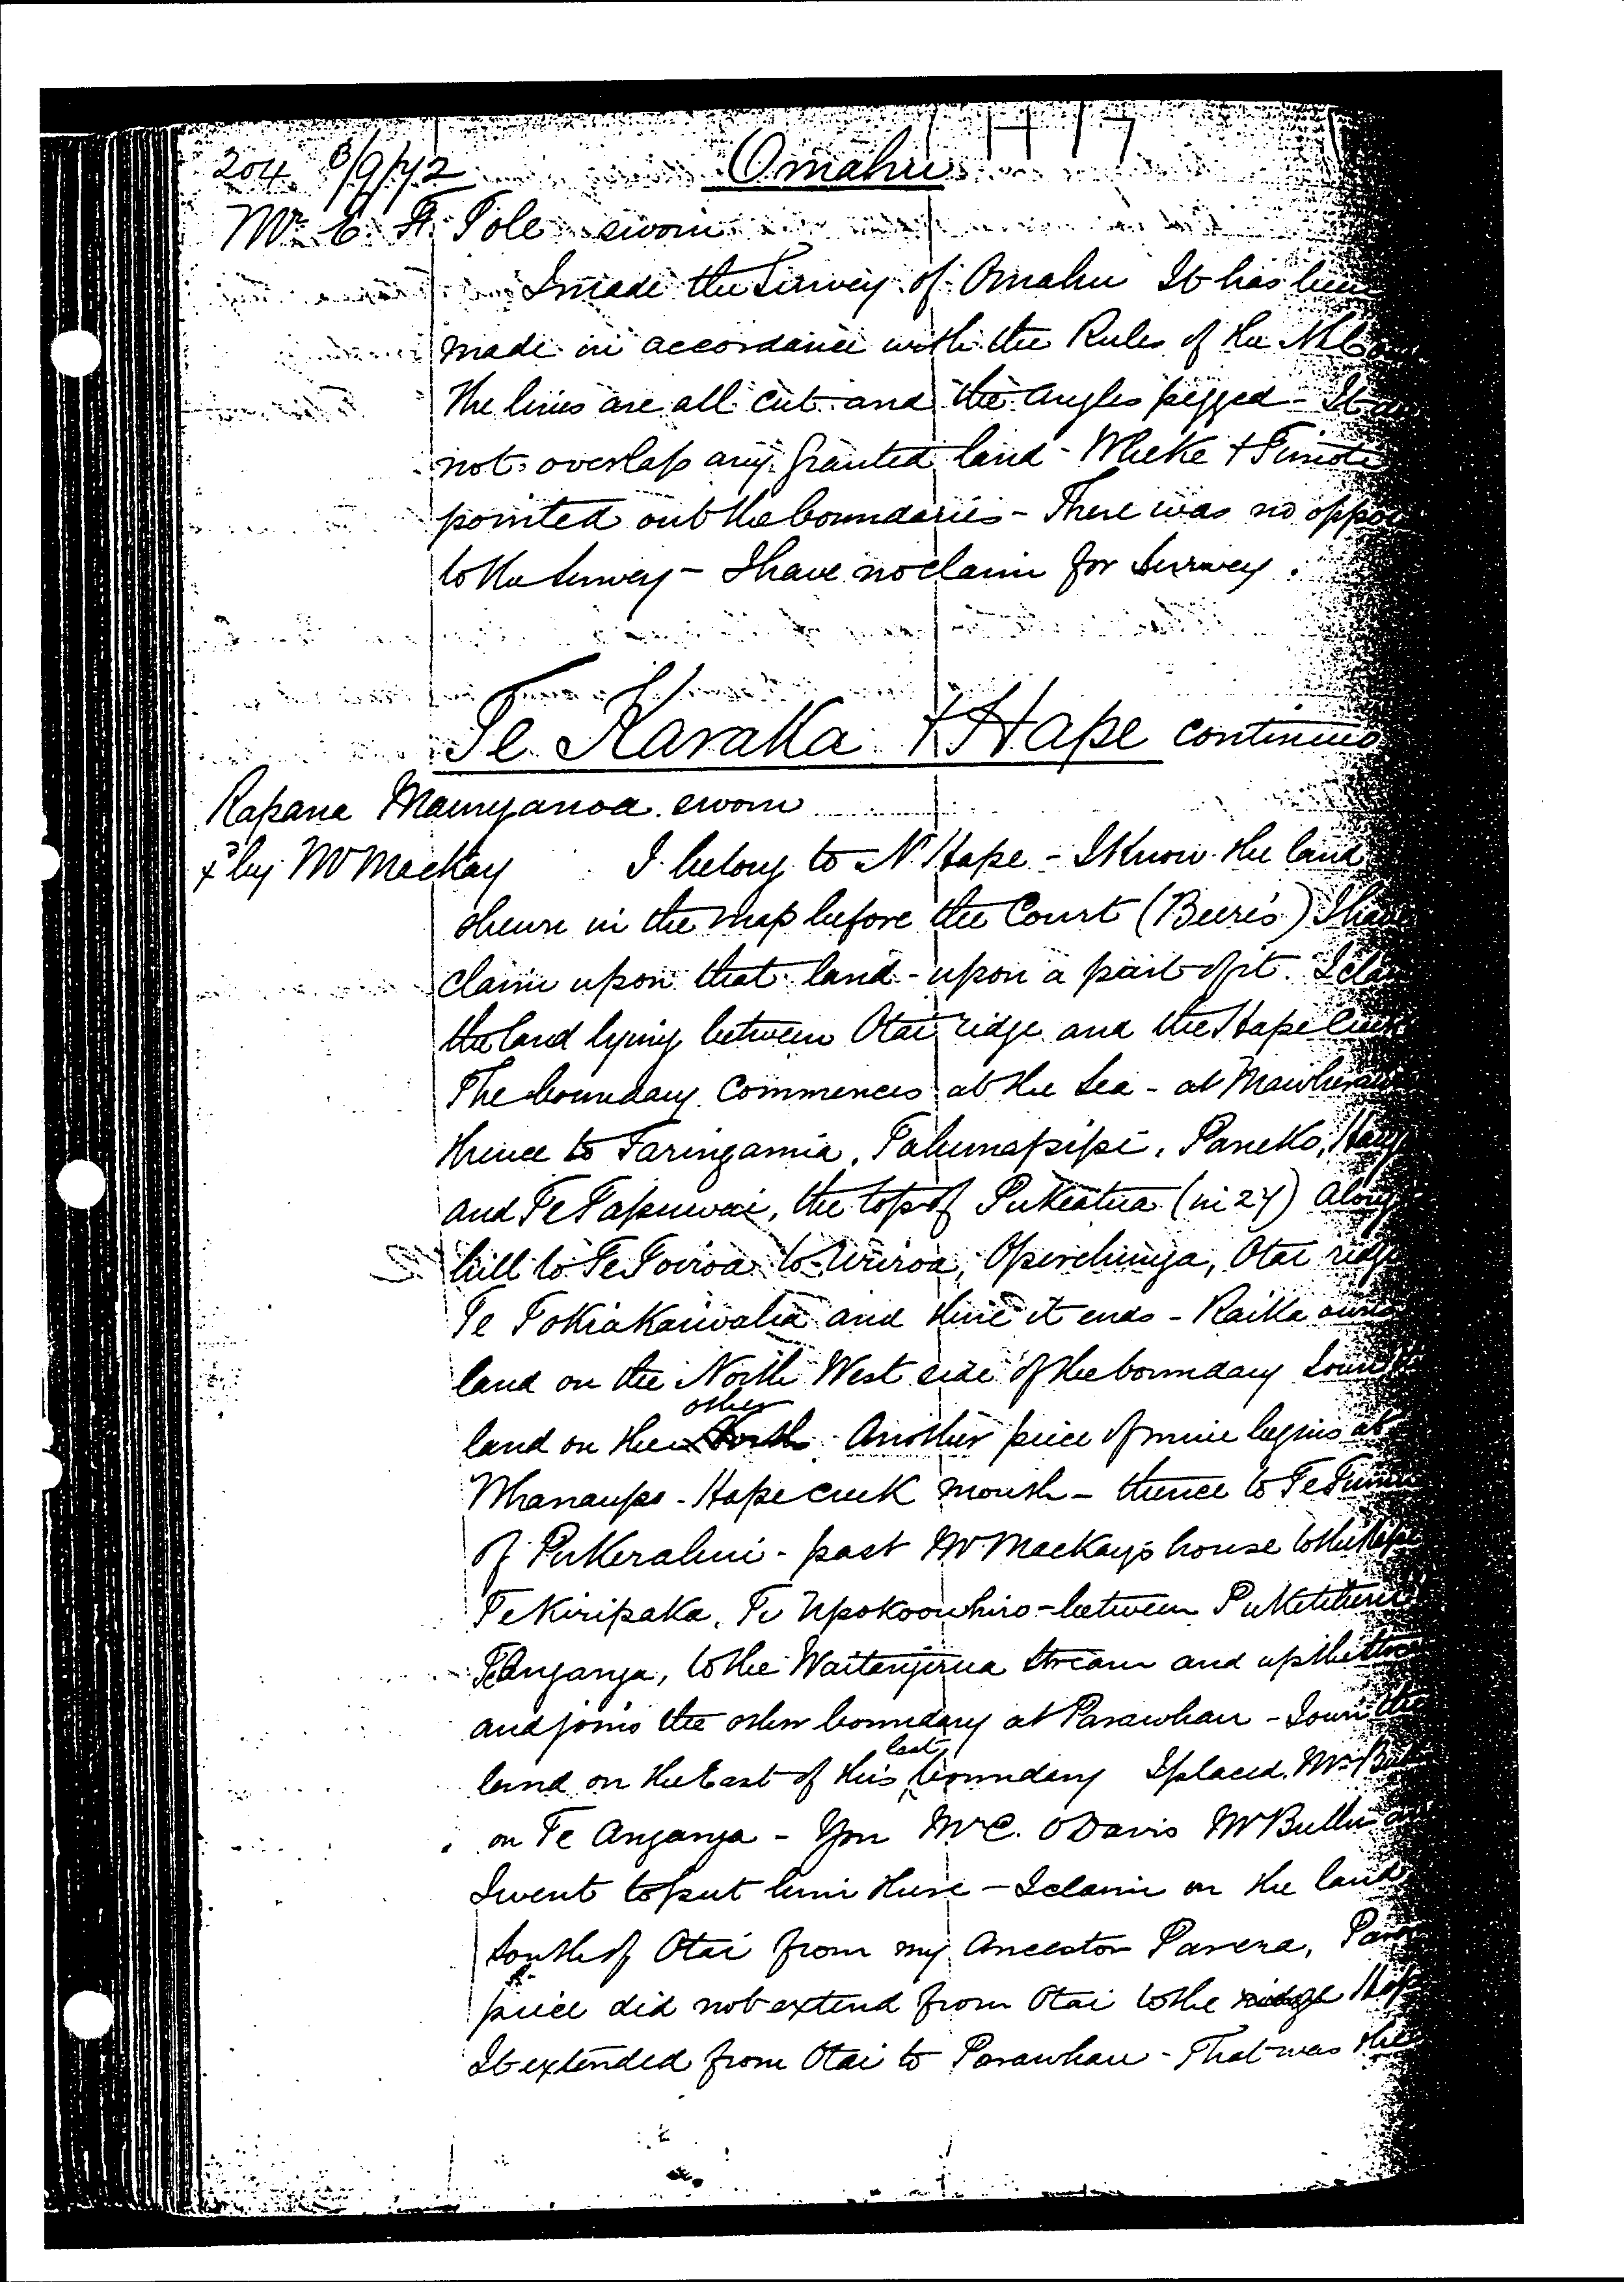 204. Omahu H 7
Mr. E. F. Tole sworn
I made the Survey of Omahu It has been
made in accordance with the Rules of the
The lines are all cut and the angles pegged - It
not overlap any granted land - Wheke &
pointed out the boundaries - There was no
to the Survey - I have no claim for Survey.
Te Karaka & Hape continued
Rapana Maunganoa sworn
x by Mr Mackay I belong to N. Hape - I know the land
shewn in the map before the Court (Beere's) I have
claim upon that land - upon a part of it. I
the land lying between Otai ridge and the Hape Creek
The boundary commences at the Sea - at
thence to Taringamia, Tahunapipi, Paneko,
and Te Tapuwae, the top of Pukeatua (in 27) along
hill to Te Toiroa to Uriroa, Otai ridge
Te Tokiakaiwaha and there it ends - Raika
land on the North West side of the boundary I own
other
land on the North. Another piece of mine begins at
Whanaupo - Hape creek mouth - thence to
of Pukerahui - past Mr Mackay's house to the
Te Kiripaka, Te Upokoowhiro - between
Te Anganga, to the Waitangirua stream and up the
and joins the other boundary at Parawhau - I own the
last
land on the East of this boundary I placed Mr
on Te Anganga - You Mr C. O Davis Mr Bullen
I went to put him there - I claim on the land
South of Otai from my Ancestor Parera,
piece did not extend from Otai to the ridge
It extended from Otai to Parawhau - That was the